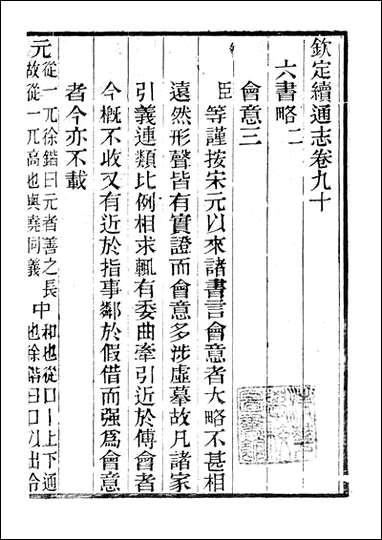 欽定續通志卷九十
六書略二
會意三
臣等謹按宋元以來諸書言會意者大略不甚相
遠然形聲皆有實證而會意多涉虛摹故凡諸家
引義連類比例相求輒有委曲牽引近於傅會者
今槪不收又有近於指事鄰於假借而强爲會意
者今亦不載
元從一兀徐鍇曰元者善之長故從一兀高也與堯同義 中和也從口丨上下通也徐鍇曰口以出合